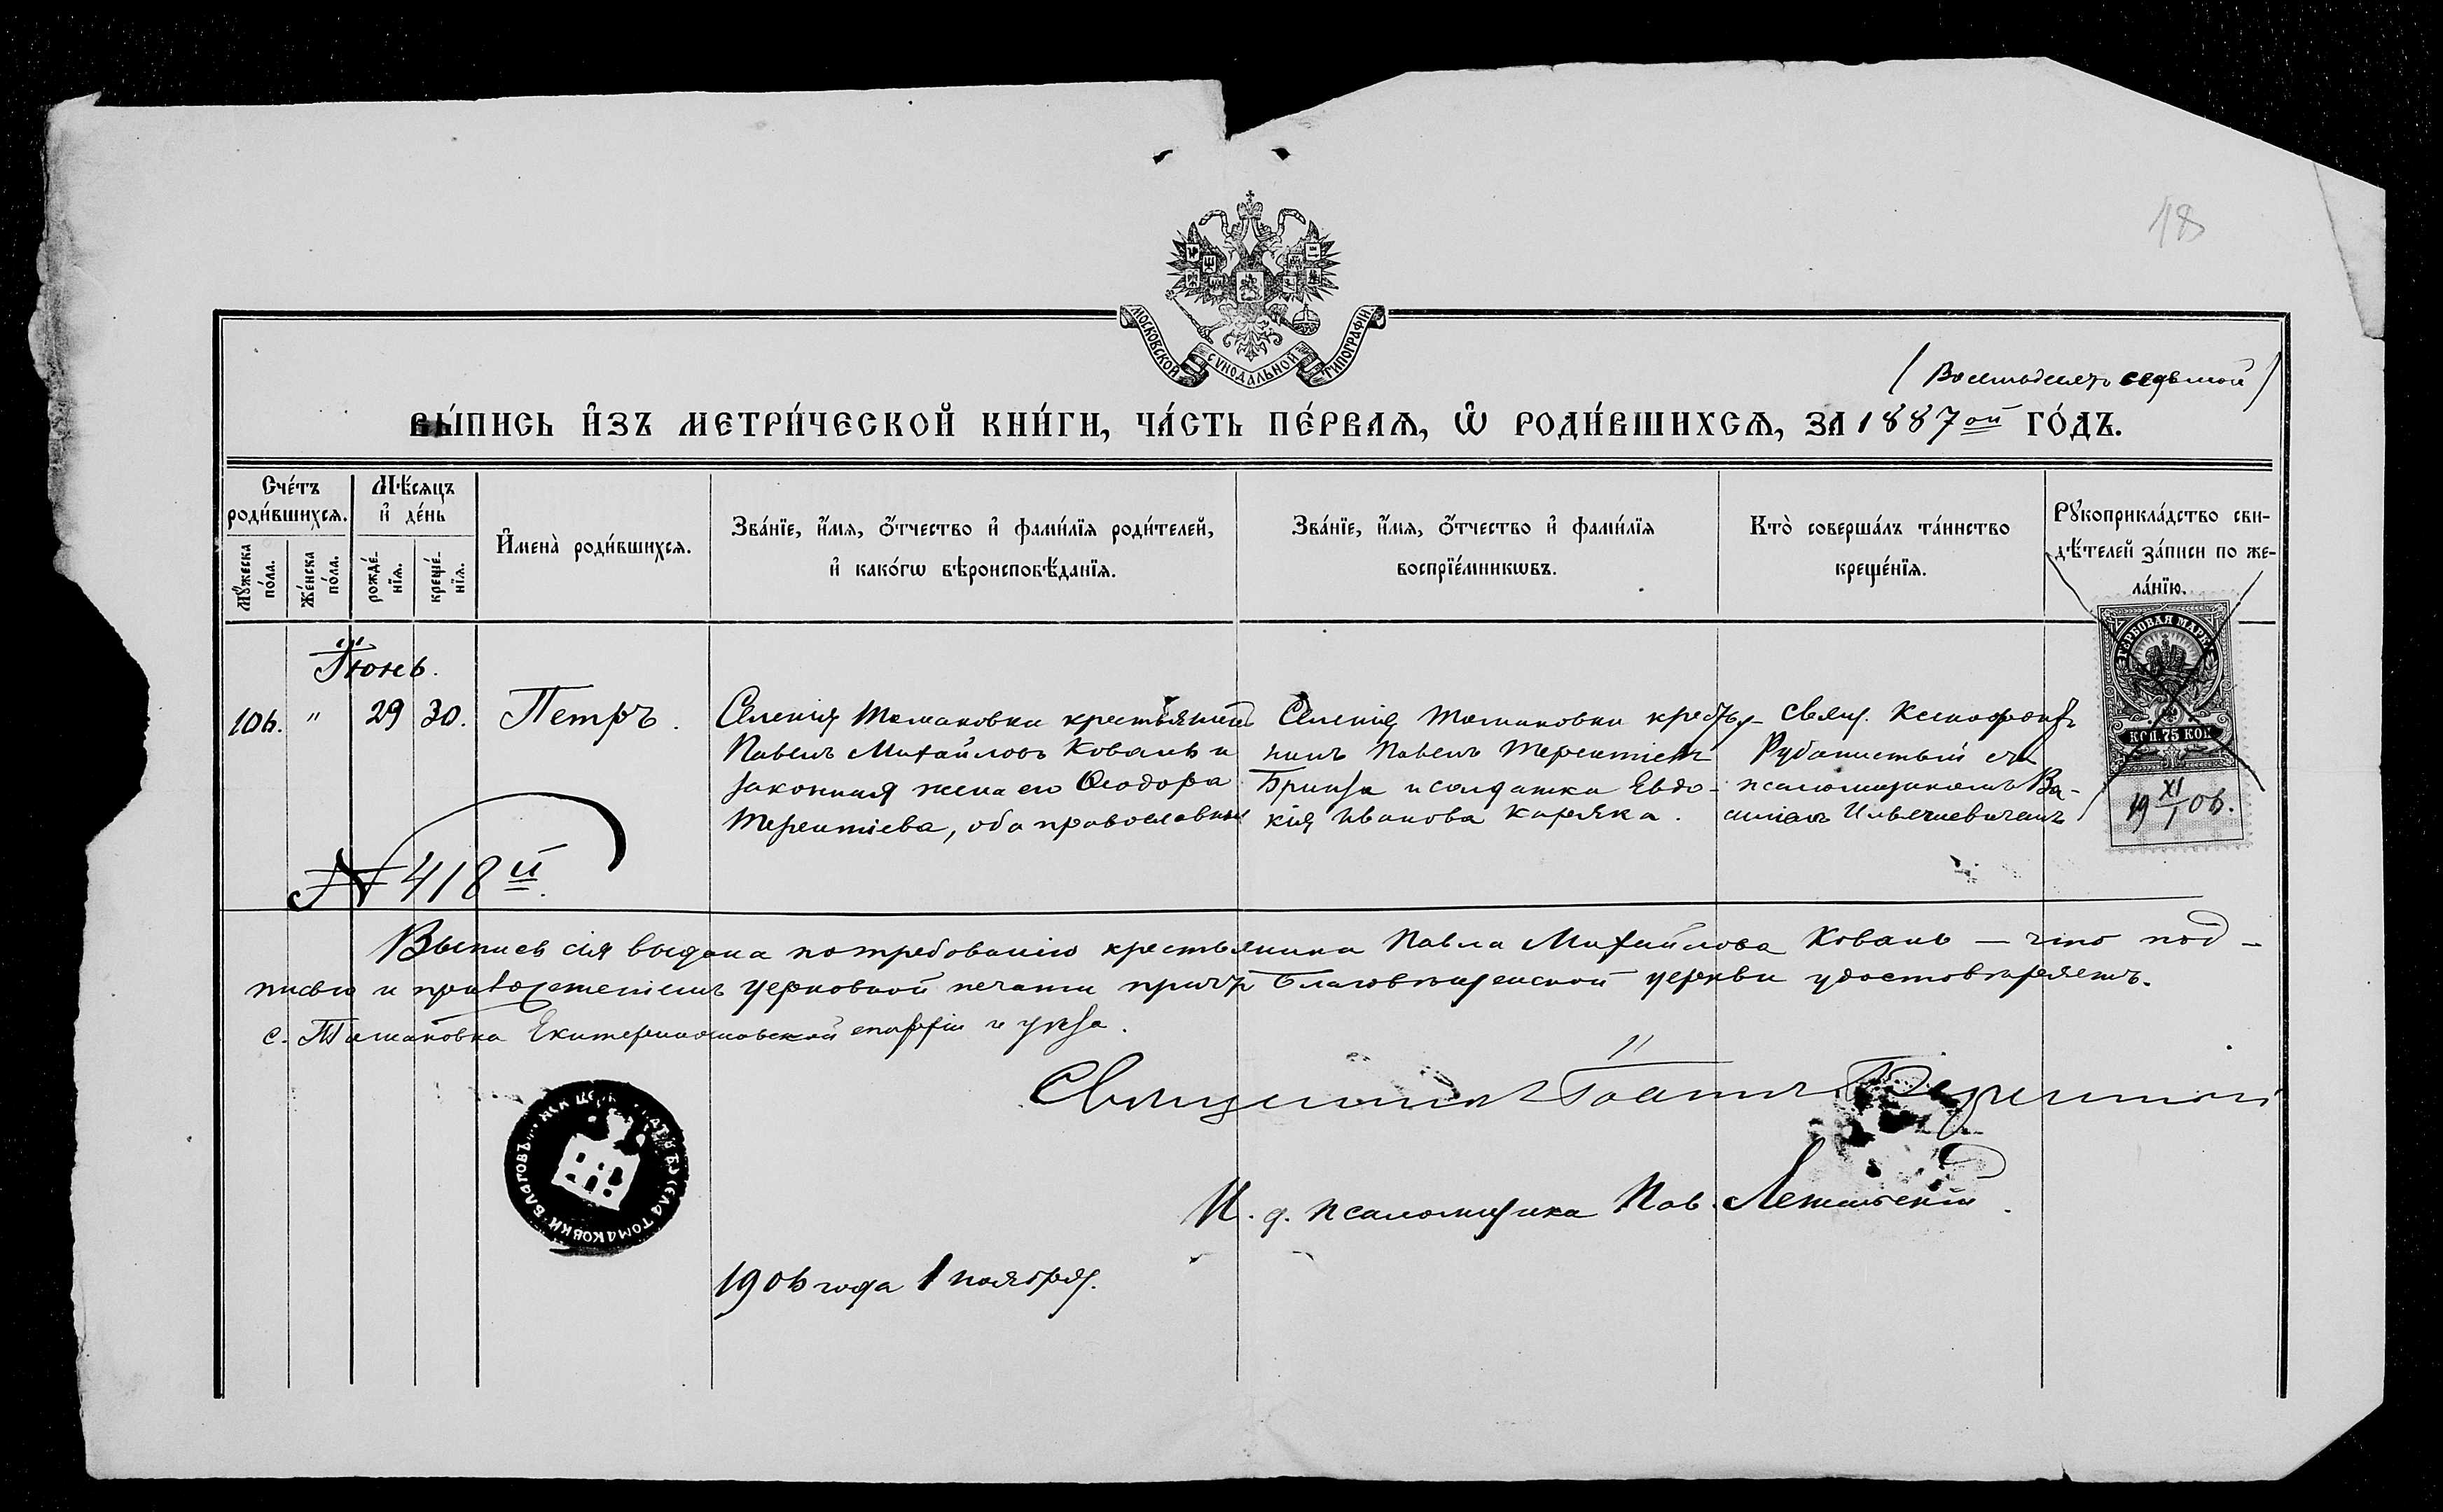 18
МОСКОВСКОЙ СѴНОДАЛЬНОЙ ТИПОГРАФІИ
(Восемьдесятъ седьмой)
ВЫ́ПИСЬ И҆ЗЪ МЕТРИ́ЧЕСКОЙ КНИ́ГИ, ЧА́СТЬ ПЕ́РВАѦ, Ѡ҆ РОДИ́ВШИХСѦ, ЗА 1887ой ГО́ДЪ.
Сче́тъ роди́вшихсѧ.
Мꙋ́жеска по́ла.
Же́нска по́ла.
Мѣ́сѧцъ и҆ де́нь
рожде́нїѧ.
креще́нїѧ.
И҆мена̀ роди́вшихсѧ.
Зва́нїе, и҆́мѧ, ѻ҆́тчество и҆ фами́лїѧ роди́телей,
и҆ како́гѡ вѣроисповѣ́данїѧ.
Зва́нїе, и҆́мѧ, ѻ҆́тчество и҆ фами́лїѧ
воспрїе́мникѡвъ.
Кто̀ соверша́лъ та́инство
креще́нїѧ.
Рꙋкоприкла́дство сви-
дѣ́телей за́писи по же-
ла́нїю.
Іюнь.
106.
"
29
30.
Петръ.
Селенія Томаковки крестьянинъ
Павелъ Михайловъ Коваль и
законная жена его Ѳеодора
Терентіева, оба православные
Селенія Томаковки кресть-
нинъ Павелъ Терентіевъ
Бринза и солдатка Евдо-
кія Иванова Каряка.
Свящ. Ксенофонтъ
Рубанистый съ
псаломщикомъ Ва-
силіемъ Ильяшевичемъ
ГЕРБОВАЯ МАРКА
КОП. 75 КОП.
19 XI/1 06.
№ 418й
Выпись сія выдана по требованію крестьянина Павла Михайлова Коваль — что под-
писью и приложеніемъ церковной печати причтъ Благовѣщенской церкви удостовѣряетъ.
с. Томаковка Екатеринославской епархіи и уѣзда.
Священникъ Іоаннъ
И. д. псаломщика Пав.
СЕЛА ТОМАКОВКИ БЛАГОВѢЩЕНСК ЦЕРК
1906 года 1 ноября.